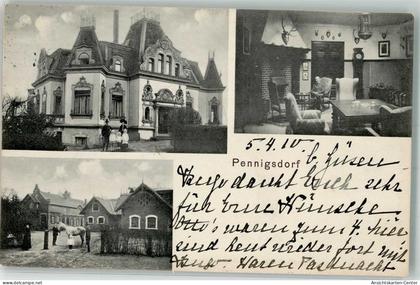 5.4.10
Pennigsdorf b/ Güsen
dankt Euch sehr
für Eure Wünsche.
Otto's waren zum 4. hier
sind heut wieder fort mit
Ansichtskarten-Center